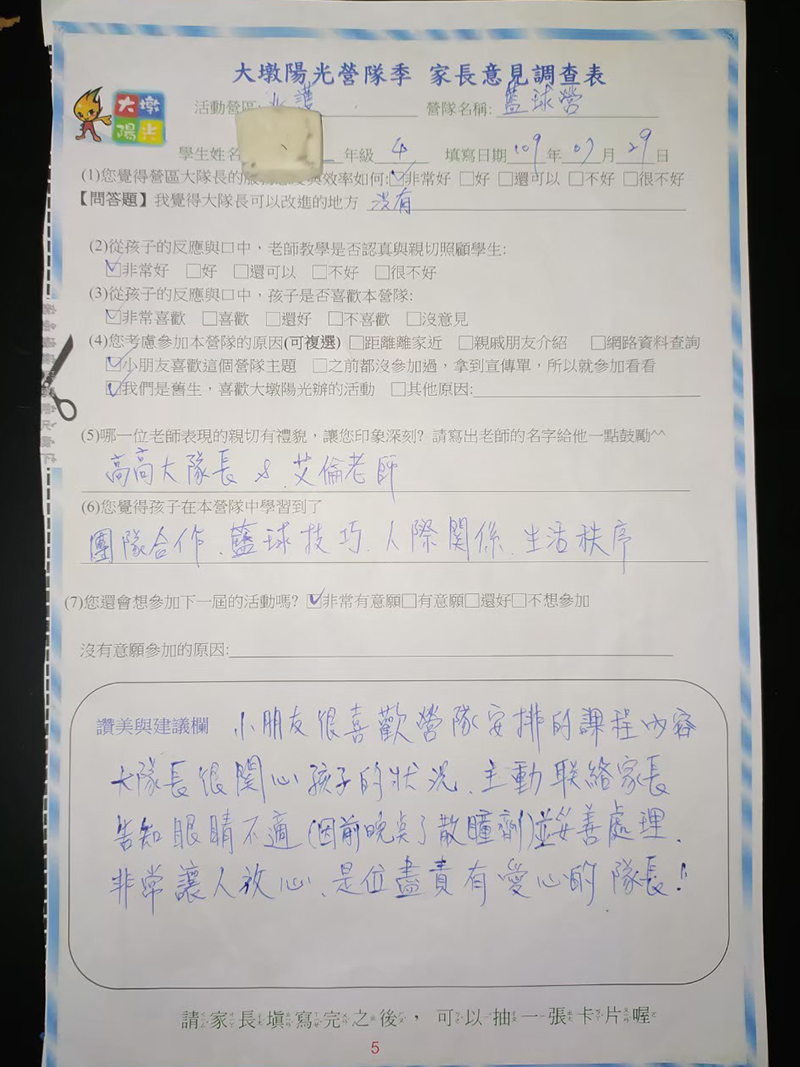 大墩陽光營隊季 家長意見調查表
大墩
陽光
活動營區: 北護 營隊名稱: 籃球營
學生姓名 年級 4 填寫日期 109 年 07 月 29 日
(1)您覺得營區大隊長的服務態度與效率如何:☑非常好 □好 □還可以 □不好 □很不好
【問答題】我覺得大隊長可以改進的地方 沒有
(2)從孩子的反應與口中，老師教學是否認真與親切照顧學生:
☑非常好 □好 □還可以 □不好 □很不好
(3)從孩子的反應與口中，孩子是否喜歡本營隊:
☑非常喜歡 □喜歡 □還好 □不喜歡 □沒意見
(4)您考慮參加本營隊的原因(可複選) □距離離家近 □親戚朋友介紹 □網路資料查詢
☑小朋友喜歡這個營隊主題 □之前都沒參加過，拿到宣傳單，所以就參加看看
☑我們是舊生，喜歡大墩陽光辦的活動 □其他原因:
(5)哪一位老師表現的親切有禮貌，讓您印象深刻? 請寫出老師的名字給他一點鼓勵^^
高高大隊長 & 艾倫老師
(6)您覺得孩子在本營隊中學習到了
團隊合作、籃球技巧、人際關係、生活秩序
(7)您還會想參加下一屆的活動嗎? ☑非常有意願□有意願□還好□不想參加
沒有意願參加的原因:
讚美與建議欄 小朋友很喜歡營隊安排的課程內容
大隊長很關心孩子的狀況、主動聯絡家長
告知眼睛不適(因前晚點了散瞳劑)並妥善處理、
非常讓人放心、是位盡責有愛心的隊長!
請家長填寫完之後，可以抽一張卡片喔
5